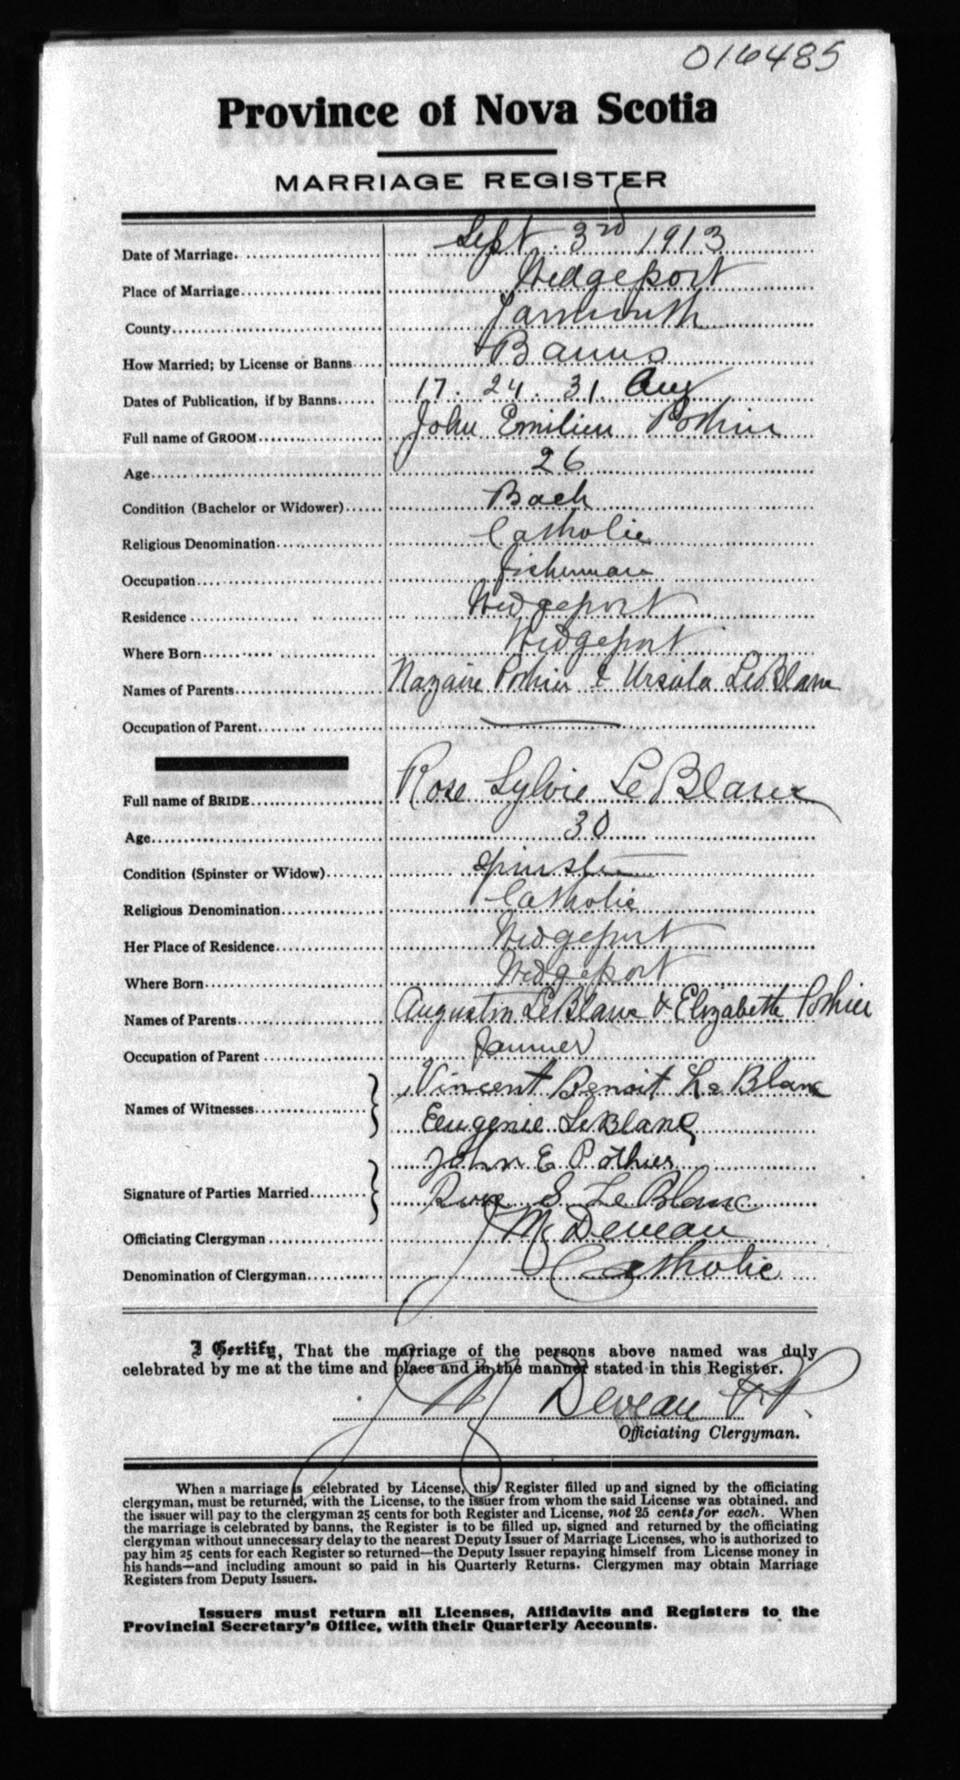 016485
Province of Nova Scotia
MARRIAGE REGISTER
Date of Marriage. Sept. 3rd 1913
Place of Marriage Wedgeport
County Yarmouth
How Married; by License or Banns Banns
Dates of Publication, if by Banns 17. 24. 31. Aug
Full name of GROOM John Emilien Pothier
Age 26
Condition (Bachelor or Widower) Bach
Religious Denomination Catholic
Occupation fisherman
Residence Wedgeport
Where Born Wedgeport
Names of Parents Nazaire Pothier & Ursula LeBlanc
Occupation of Parent
Full name of BRIDE Rose Sylvie LeBlanc
Age 30
Condition (Spinster or Widow) Spinster
Religious Denomination Catholic
Her Place of Residence Wedgeport
Where Born Wedgeport
Names of Parents Augustin LeBlanc & Elizabeth Pothier
Occupation of Parent
Names of Witnesses Vincent Benoit Le Blanc
Eugenie LeBlanc
Signature of Parties Married John E Pothier
Rose S. LeBlanc
Officiating Clergyman J M Deveau
Denomination of Clergyman Catholic
I Certify, That the marriage of the persons above named was duly
celebrated by me at the time and place and in the manner stated in this Register.
J M Deveau P.P.
Officiating Clergyman.
When a marriage is celebrated by License, this Register filled up and signed by the officiating
clergyman, must be returned, with the License, to the issuer from whom the said License was obtained, and
the issuer will pay to the clergyman 25 cents for both Register and License, not 25 cents for each. When
the marriage is celebrated by banns, the Register is to be filled up, signed and returned by the officiating
clergyman without unnecessary delay to the nearest Deputy Issuer of Marriage Licenses, who is authorized to
pay him 25 cents for each Register so returned—the Deputy Issuer repaying himself from License money in
his hands—and including amount so paid in his Quarterly Returns. Clergymen may obtain Marriage
Registers from Deputy Issuers.
Issuers must return all Licenses, Affidavits and Registers to the
Provincial Secretary's Office, with their Quarterly Accounts.